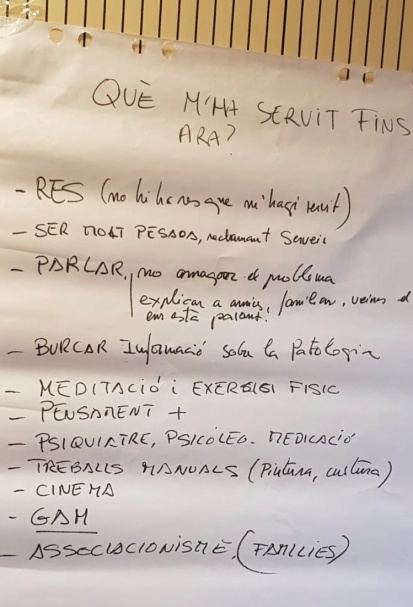 QUÈ M'HA SERVIT FINS
ARA?
- RES (no hi ha res que m'hagi servit)
- SER MOLT PESADA, reclamant Serveis
- PARLAR, no amagar el problema
explicar a amics, familiars, veïns el
ens està passant.
- BUSCAR Informació sobre la Patologia
- MEDITACIÓ i EXERCISI FISIC
- PENSAMENT +
- PSIQUIATRE, PSICÒLEG. MEDICACIÓ
- TREBALLS MANUALS (Pintura, costura)
- CINEMA
- GAM
- ASSOCIACIONISME, (FAMILIES)